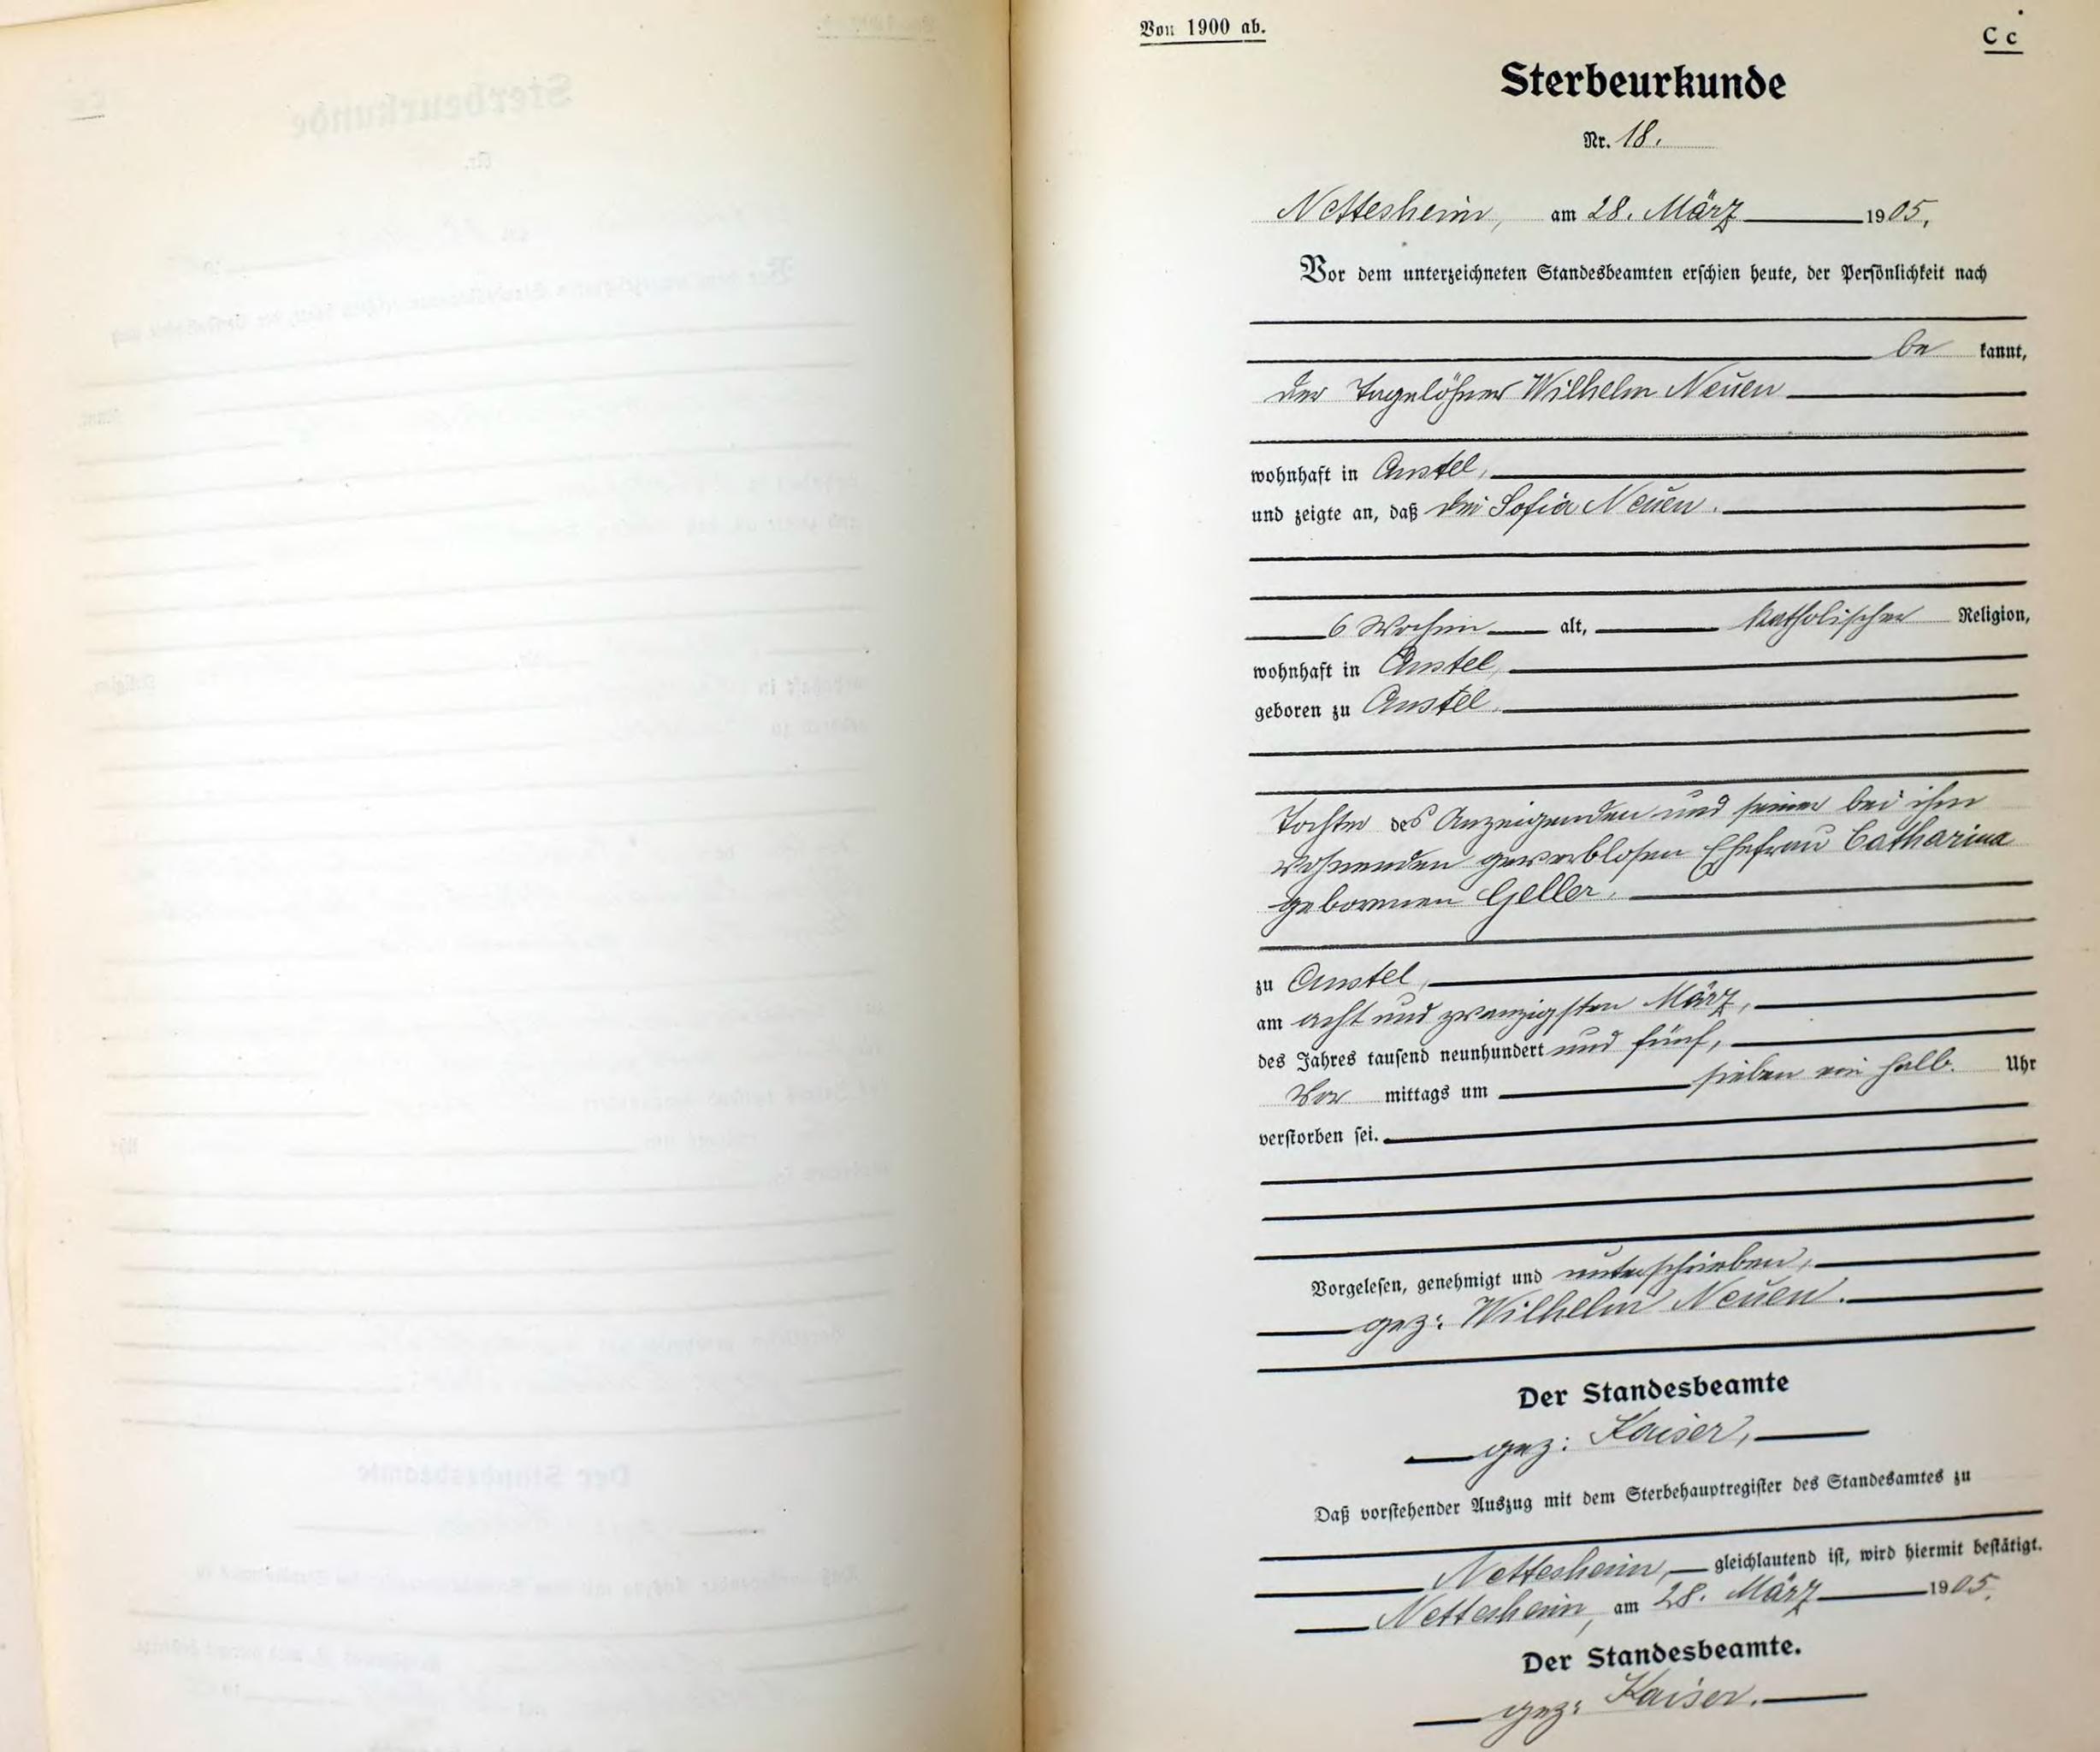 Von 1900 ab.
C c
Sterbeurkunde
Nr. 18.
Nettesheim, am 28. März 1905.
Vor dem unterzeichneten Standesbeamten erschien heute, der Persönlichkeit nach
be kannt,
der Tagelöhner Wilhelm Neuen
wohnhaft in Anstel,
und zeigte an, daß die Sofia Neuen.
6 Wochen alt, katholischer Religion,
wohnhaft in Anstel,
geboren zu Anstel,
Tochter des Anzeigenden und seiner bei ihm
wohnenden gewerblosen Ehefrau Catharina
geborenen Geller,
zu Anstel,
am acht und zwanzigsten März,
des Jahres tausend neunhundert und fünf,
Vor mittags um sieben ein halb. Uhr
verstorben sei.
Vorgelesen, genehmigt und unterschrieben,
gez: Wilhelm Neuen.
Der Standesbeamte
gez: Kaiser,
Daß vorstehender Auszug mit dem Sterbehauptregister des Standesamtes zu
Nettesheim, gleichlautend ist, wird hiermit bestätigt.
Nettesheim, am 28. März 1905.
Der Standesbeamte.
gez: Kaiser.